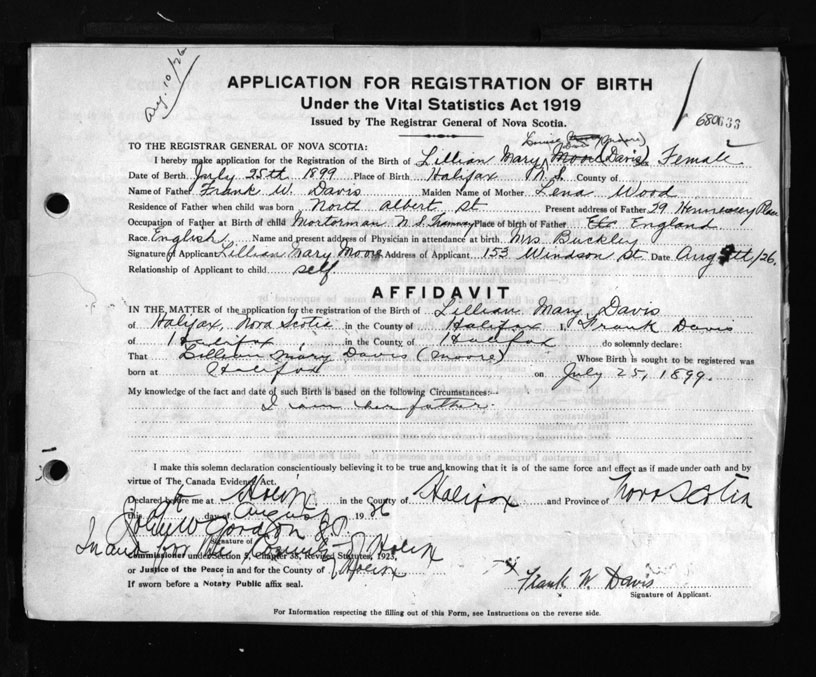 Aug. 10/26
APPLICATION FOR REGISTRATION OF BIRTH
Under the Vital Statistics Act 1919
Issued by The Registrar General of Nova Scotia.
680633
TO THE REGISTRAR GENERAL OF NOVA SCOTIA:
I hereby make application for the Registration of the Birth of Lillian Mary Moore (Davis) Female
Date of Birth July 25th 1899 Place of Birth Halifax N.S. County of
Name of Father Frank W. Davis Maiden Name of Mother Lena Wood
Residence of Father when child was born North Albert St Present address of Father 29
Occupation of Father at Birth of child Mortorman N.S. Tramway Place of birth of Father England
Race English Name and present address of Physician in attendance at birth Mrs Buckley
Signature of Applicant Lillian Mary Moore Address of Applicant 153 Windson St. Date Aug 9th/26.
Relationship of Applicant to child self
AFFIDAVIT
IN THE MATTER of the application for the registration of the Birth of Lillian Mary Davis
of Halifax, Nova Scotia in the County of Halifax, Frank Davis
of Halifax in the County of Halifax do solemnly declare:
That Lillian Mary Davis (Moore) Whose Birth is sought to be registered was
born at Halifax on July 25, 1899.
My knowledge of the fact and date of such Birth is based on the following Circumstances:—
I am her father.
I make this solemn declaration conscientiously believing it to be true and knowing that it is of the same force and effect as if made under oath and by
virtue of The Canada Evidence Act.
Declared before me at in the County of Halifax and Province of Nova Scotia
this day of August 1926
John W Gordon J.P.
Signature of
In and for the County of
Commissioner under Section 5, Chapter 38, Revised Statutes, 1923,
or Justice of the Peace in and for the County of
If sworn before a Notary Public affix seal.
Frank W. Davis
Signature of Applicant.
For Information respecting the filling out of this Form, see Instructions on the reverse side.